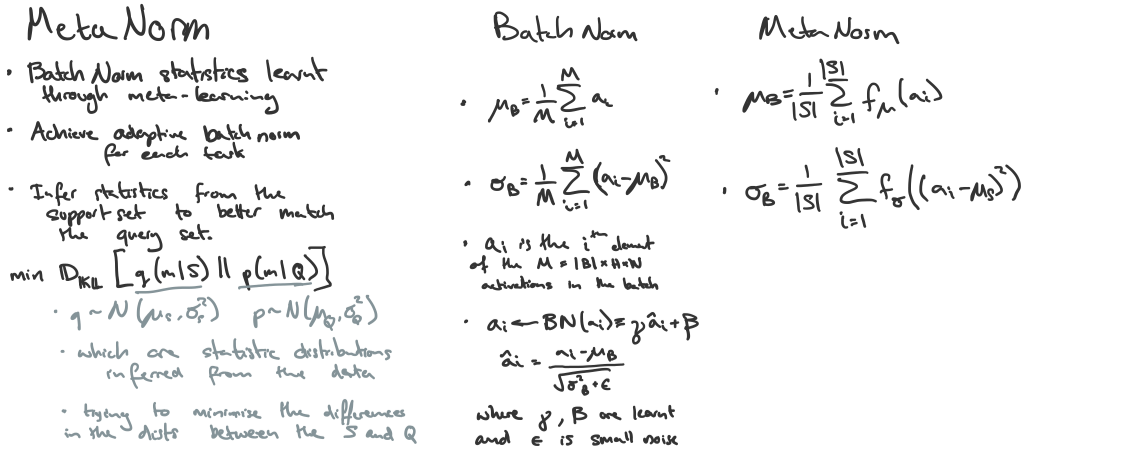 Meta Norm
• Batch Norm statistics learnt
through meta-learning
• Achieve adaptive batch norm
for each task
• Infer statistics from the
support set to better match
the query set.
min D_KL [q(m|S) || p(m|Q)]
• q ~ N(μ_S, σ_S²) p ~ N(μ_Q, σ_Q²)
• which are statistic distributions
inferred from the data
• trying to minimise the differences
in the dists between the S and Q
Batch Norm
• μ_B = 1/M Σ_{i=1}^{M} a_i
• σ_B = 1/M Σ_{i=1}^{M} (a_i - μ_B)²
• a_i is the i^th element
of the M = |B| × H × W
activations in the batch
• a_i ← BN(a_i) ≡ γ â_i + β
â_i = (a_i - μ_B) / √(σ²_B + ε)
where γ, β are learnt
and ε is small noise
Meta Norm
• μ_B = 1/|S| Σ_{i=1}^{|S|} f_μ(a_i)
• σ_B = 1/|S| Σ_{i=1}^{|S|} f_σ((a_i - μ_S)²)